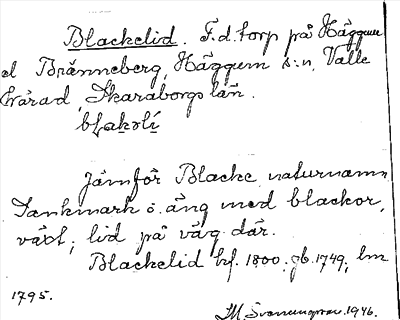 Blackelid. F.d. torp på Häggum
el Bränneberg, Häggum s:n, Valle
härad, Skaraborgs län.
blakəlí
Jämför Blacke naturnamn
Sankmark ö. äng med blackor,
växt; lid på väg där.
Blackelid hf. 1800; jb. 1749; lm
1795.
1946.